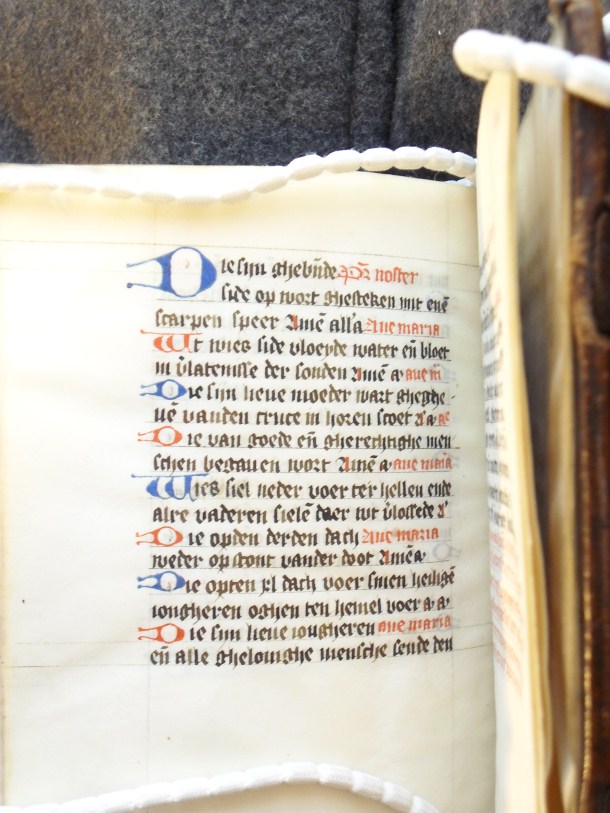 Die sijn ghebn̄de Pr̄ noster
side op wort ghesteken mit enē
scarpen speer Amē alƚa Aue maria
Wt wies side vloeyde water en̄ bloet
in v̄latenisse der sonden Amē a· aue m̄
Die sijn lieue moeder wart gheghe-
uē vanden cruce in horen scoet A' a· ae
Die van goede en̄ gherechtighe men
schen begauen wort Amē a· aue maria
Wies siel neder voer ter hellen ende
alre vaderen sielē daer wt v̄lossede a'
Die opten derden dach Aue maria
weder opstont vander doot Amē a
Die opten xl dach voer sinen heilighē
iongheren oghen ten hemel voer a· a·
Die sijn lieue iongheren aue maria
en̄ alle ghelouighe mensche sende den